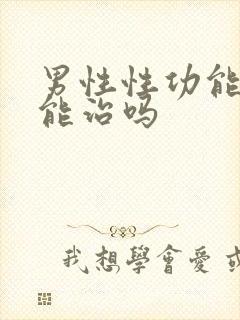 男性性功能
能治吗
我想學會愛